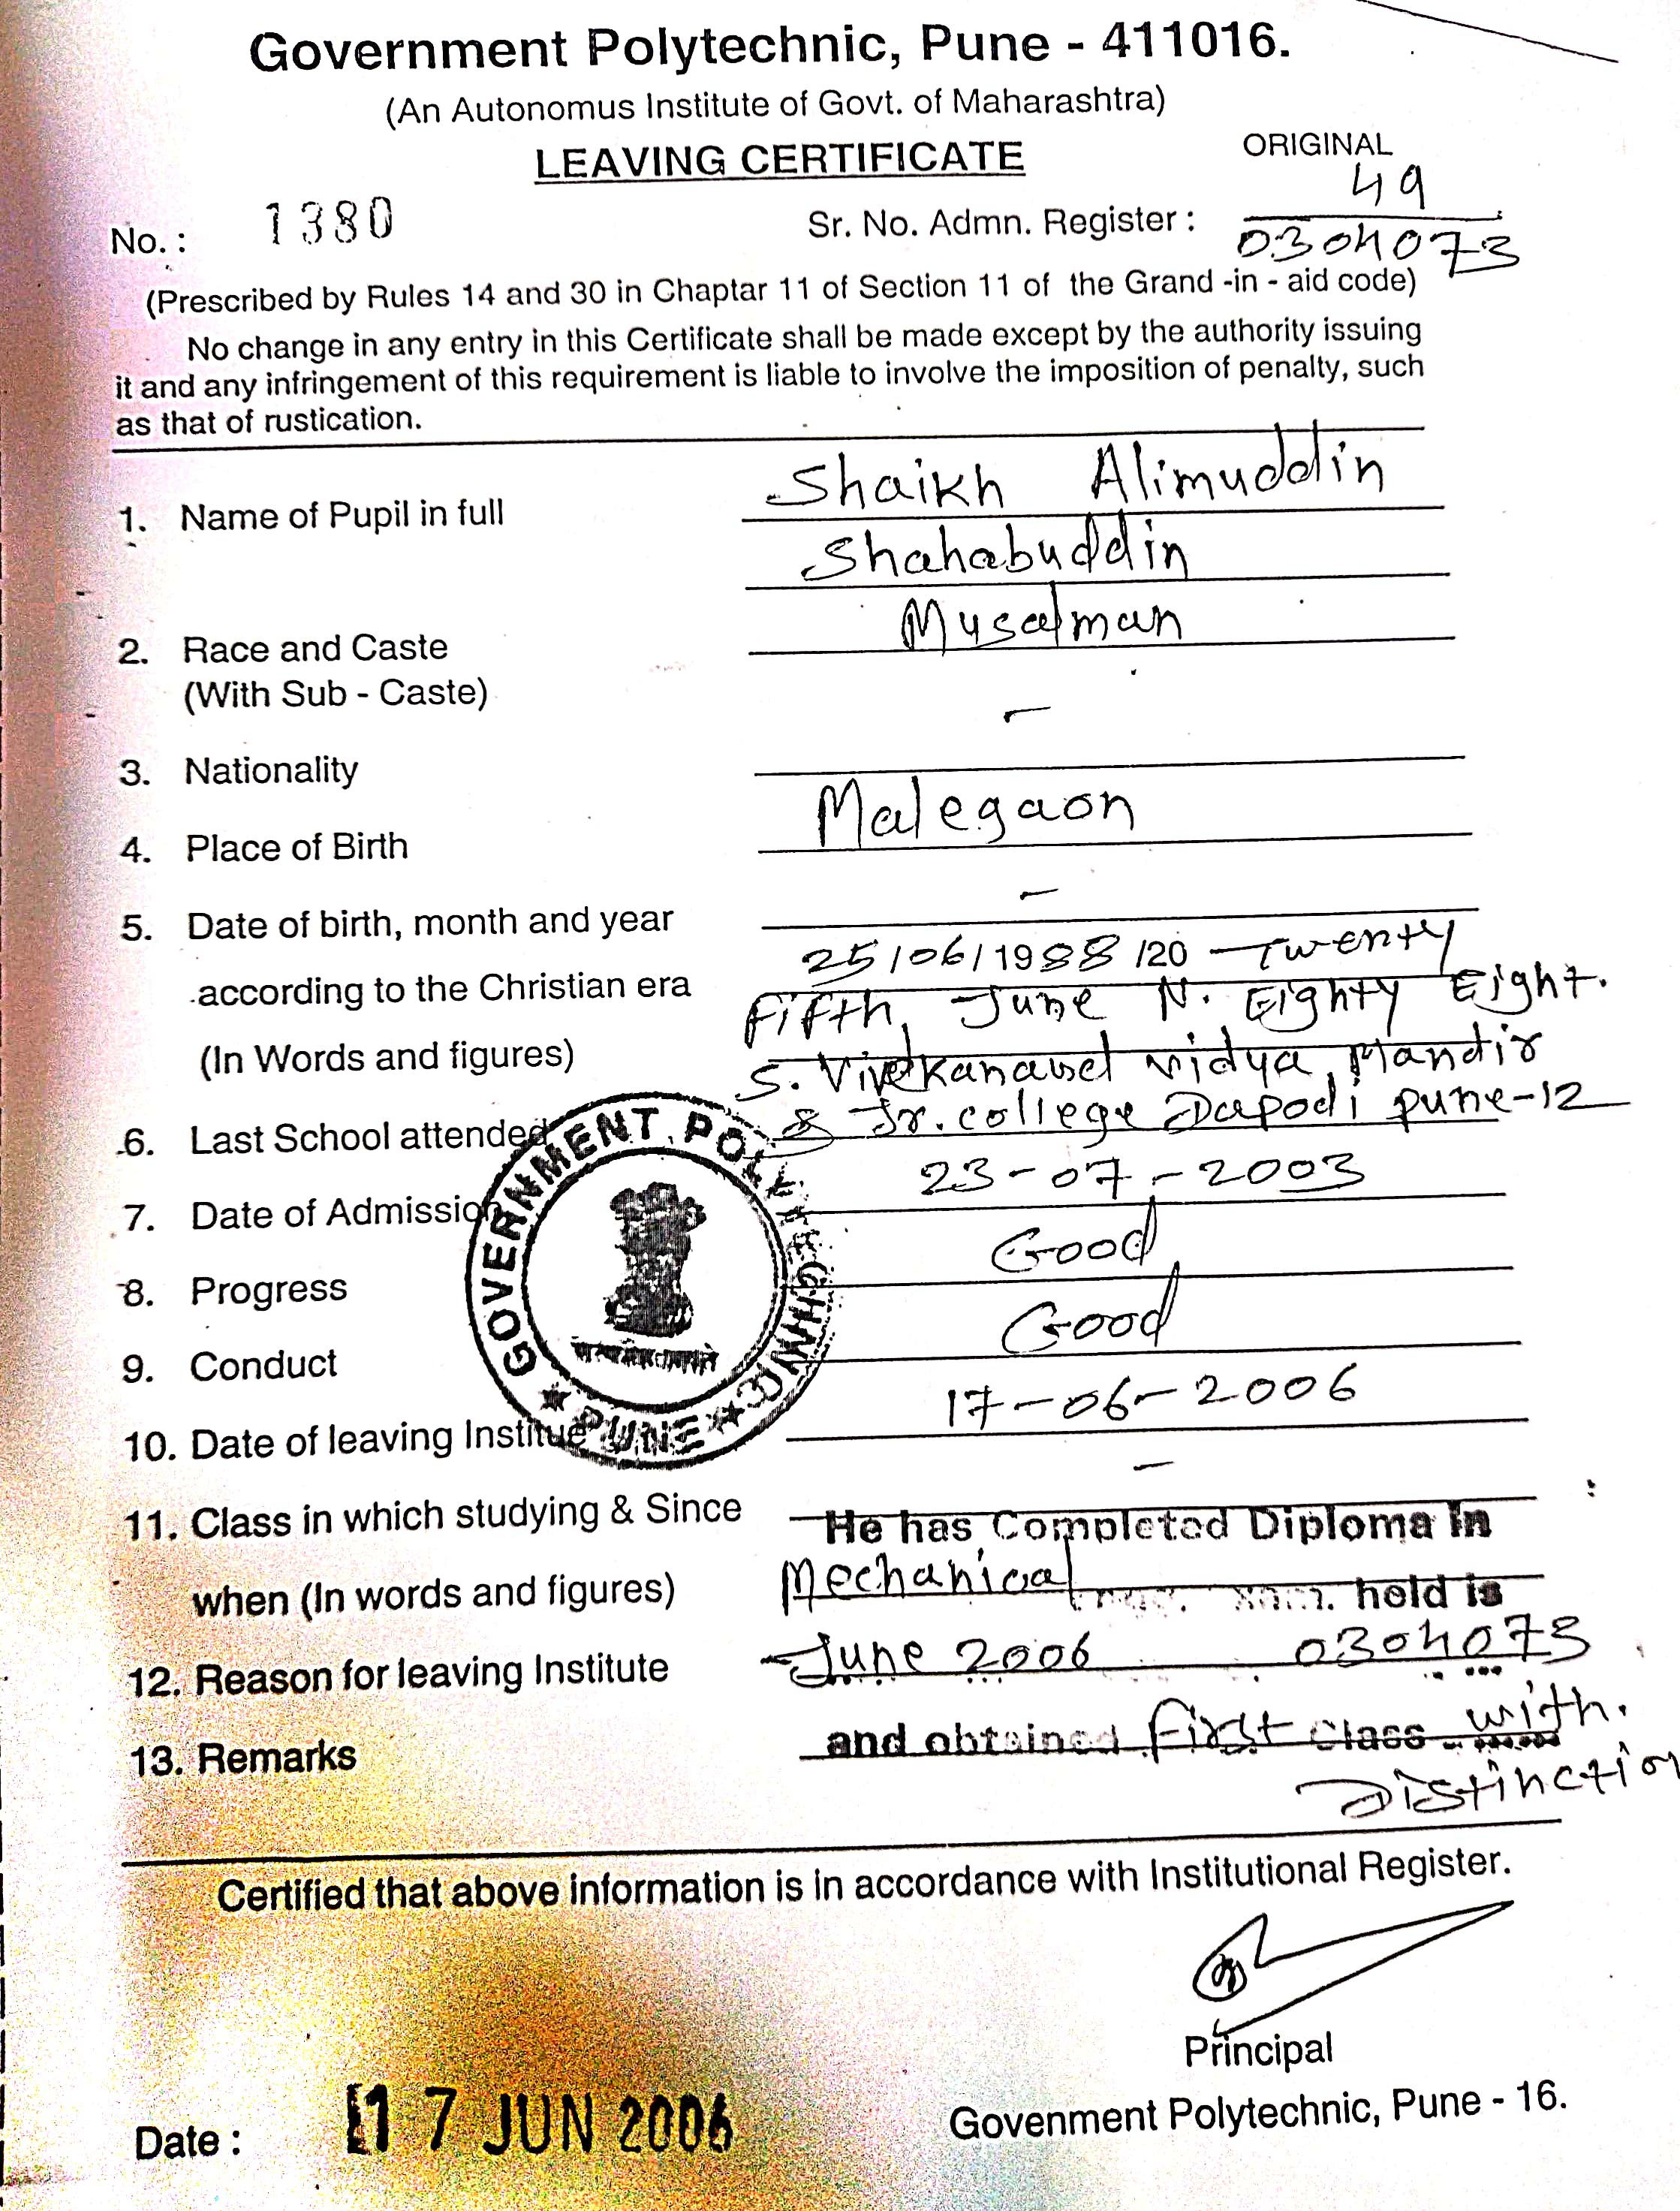 Government Polytechnic, Pune - 411016.
(An Autonomus Institute of Govt. of Maharashtra)
LEAVING CERTIFICATE
ORIGINAL
No. : 1380
Sr. No. Admn. Register : 49
0304073
(Prescribed by Rules 14 and 30 in Chaptar 11 of Section 11 of the Grand -in - aid code)
No change in any entry in this Certificate shall be made except by the authority issuing
it and any infringement of this requirement is liable to involve the imposition of penalty, such
as that of rustication.
1. Name of Pupil in full Shaikh Alimuddin
Shahabuddin
2. Race and Caste Musalman
(With Sub - Caste) -
3. Nationality
4. Place of Birth Malegaon
5. Date of birth, month and year -
according to the Christian era 25/06/1988 /20 - Twenty
(In Words and figures) Fifth, June N. Eighty Eight.
S. Vivekanand Vidya Mandir
6. Last School attended & Jr. college Dapodi pune-12
7. Date of Admission 23-07-2003
8. Progress Good
9. Conduct Good
10. Date of leaving Institue 17-06-2006
11. Class in which studying & Since -
He has Completed Diploma In
when (In words and figures) Mechanical held is
12. Reason for leaving Institute June 2006 0304073
13. Remarks and obtained First Class with.
Distinction
Certified that above information is in accordance with Institutional Register.
GOVERNMENT POLYTECHNIC
PUNE
Principal
Date : 17 JUN 2006
Govenment Polytechnic, Pune - 16.